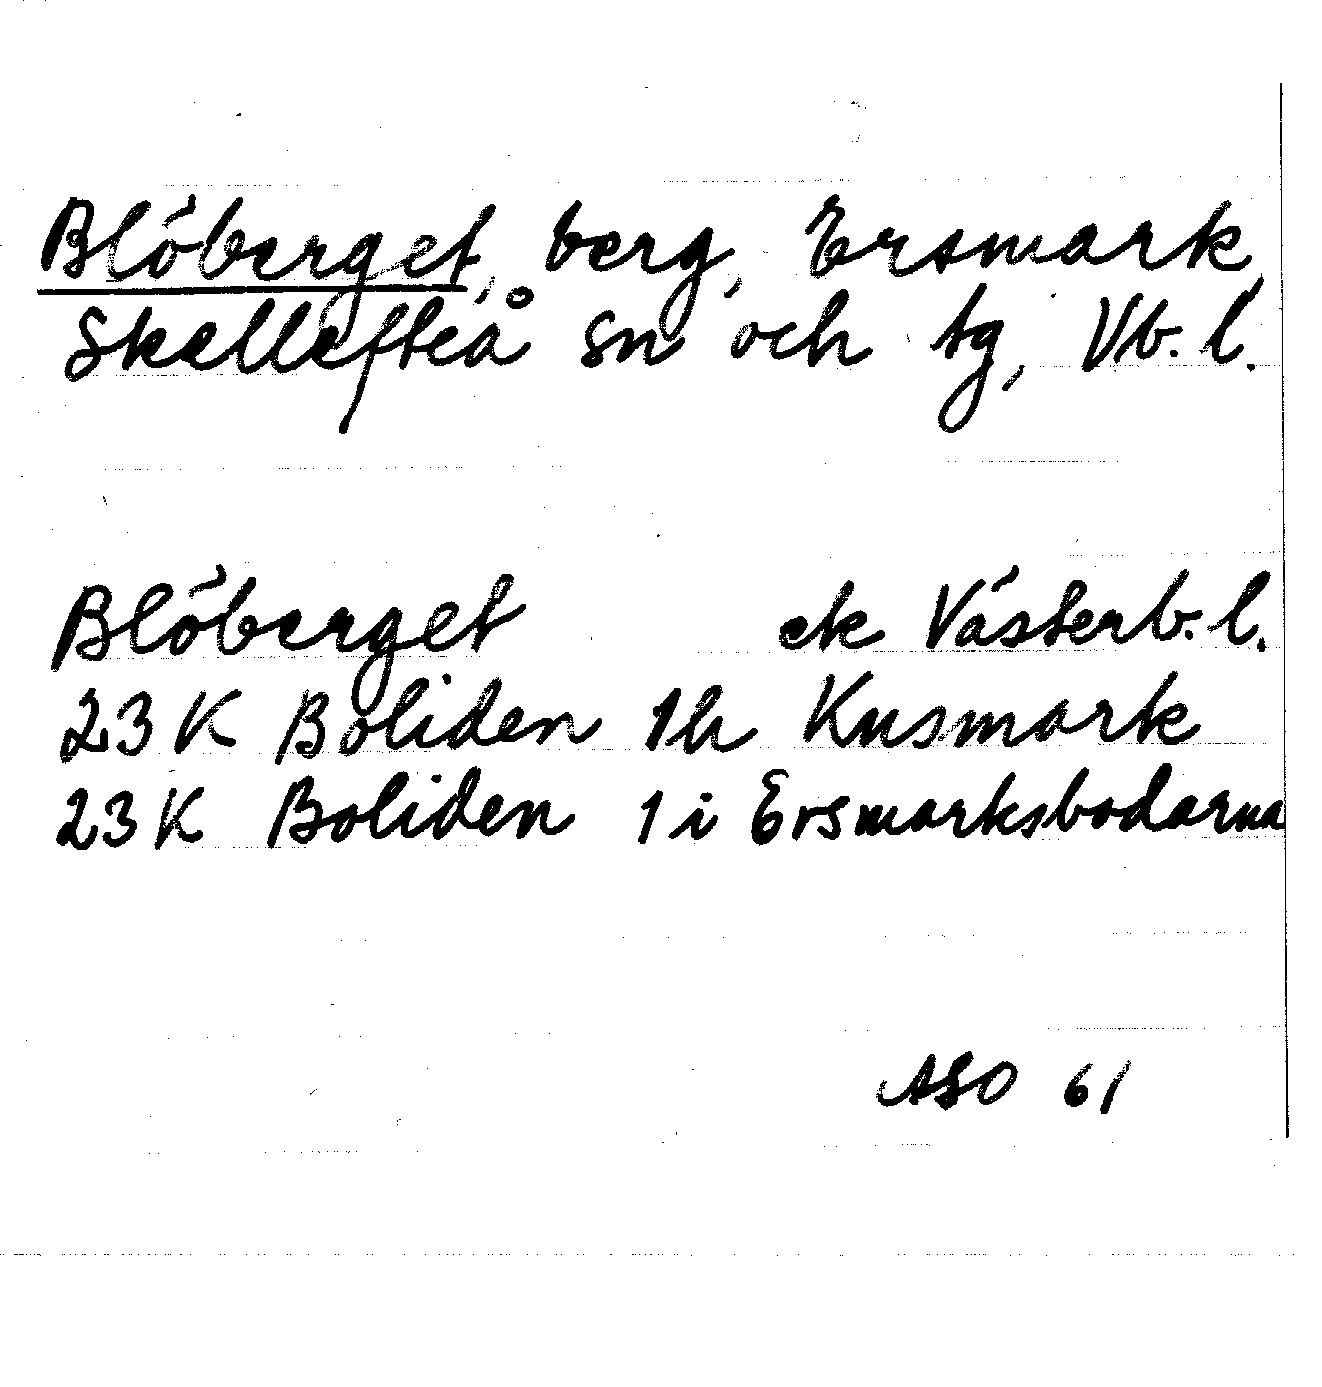 Blöberget, berg, Ersmark,
Skellefteå sn och tg, Vb. l.
Blöberget ek Västerb. l.
23 K Boliden 1h Kusmark
23 K Boliden 1 i Ersmarksbodarna
ASO 61